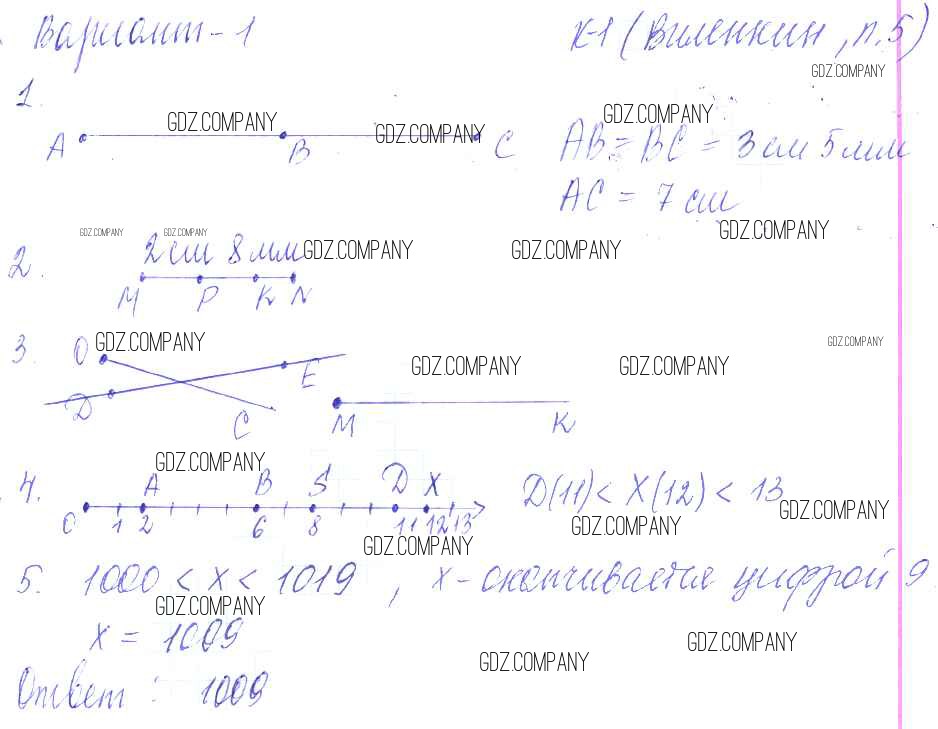 Вариант-1 К-1 (Виленкин, п.5)
GDZ.COMPANY
1.
GDZ.COMPANY GDZ.COMPANY GDZ.COMPANY
A B C AB = BC = 3 см 5 мм
AC = 7 см
GDZ.COMPANY GDZ.COMPANY GDZ.COMPANY
2. 2 см 8 мм GDZ.COMPANY GDZ.COMPANY
M P K N
3. O GDZ.COMPANY GDZ.COMPANY
GDZ.COMPANY GDZ.COMPANY
E
D C M K
GDZ.COMPANY
4. A B S D X D(11) < X(12) < 13
0 1 2 6 8 11 12 13 GDZ.COMPANY GDZ.COMPANY
GDZ.COMPANY
5. 1000 < x < 1019 , x - оканчивается цифрой 9
GDZ.COMPANY
x = 1009 GDZ.COMPANY
GDZ.COMPANY
Ответ : 1009